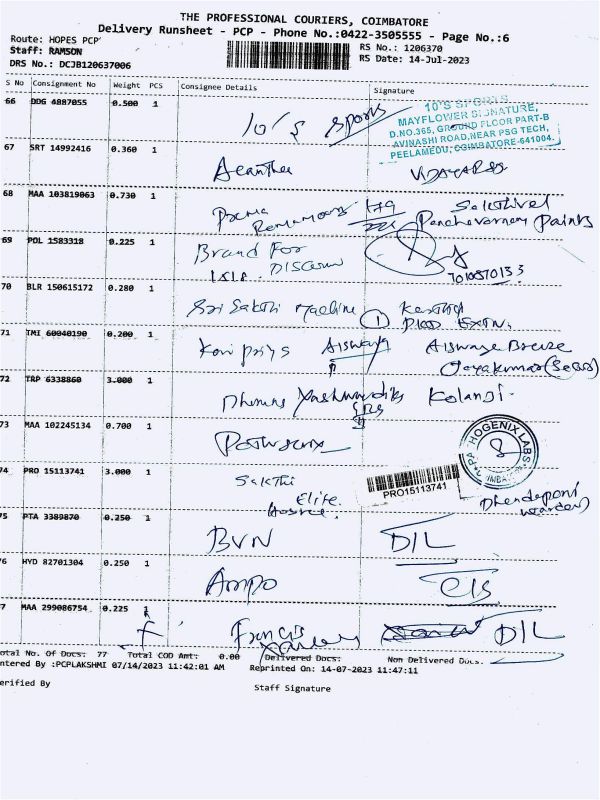 THE PROFESSIONAL COURIERS, COIMBATORE
Delivery Runsheet - PCP - Phone No.:0422-3505555 - Page No.:6
Route: HOPES PCP
Staff: RAMSON
DRS No.: DCJB120637006
RS No.: 1206370
RS Date: 14-Jul-2023
S No Consignment No Weight PCS Consignee Details Signature
66 DDG 4887055 0.500 1 10's Sports
10'S SPORTS
MAYFLOWER SIGNATURE,
D.NO.365, GROUND FLOOR PART-B
AVINASHI ROAD, NEAR PSG TECH,
PEELAMEDU, COIMBATORE-641004.
67 SRT 14992416 0.360 1 Acanthea
68 MAA 103819063 0.730 1
Sakthivel
Panchavarnam Paints
69 POL 1583318 0.225 1 Brand For
Discoun
7010570133
70 BLR 150615172 0.280 1 Sri Sakthi Machine
1
Extn.
71 TMI 60040190 0.200 1 Kavi priya Aiswarya Aiswarya Breeze
Jayakumar
72 TRP 6338860 3.000 1 Kolanji
73 MAA 102245134 0.700 1
PATHOGENIX LABS
74 PRO 15113741 3.000 1 Sakthi
Elite
PRO15113741
75 PTA 3389870 0.250 1 BVN DIL
76 HYD 82701304 0.250 1 Ampo CIS
77 MAA 299086754 0.225 1 Francis
DIL
Total No. Of Docs: 77 Total COD Amt: 0.00 Delivered Docs: Non Delivered Docs:
ntered By :PCPLAKSHMI 07/14/2023 11:42:01 AM Reprinted On: 14-07-2023 11:47:11
erified By
Staff Signature